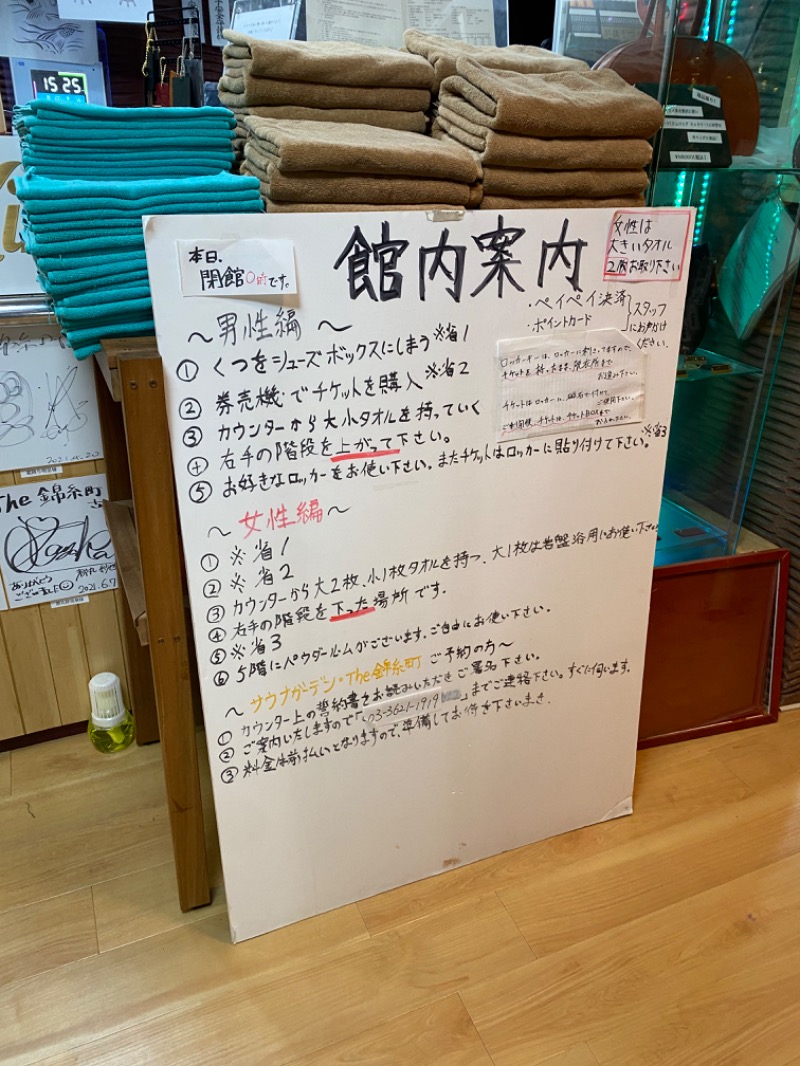 15 25
本日、
閉館0時です。
館内案内
女性は
大きいタオル
2枚お取り下さい
・ペイペイ決済
・ポイントカード
スタッフ
にお声がけ
ください。
〜男性編〜
① くつをシューズボックスにしまう※省1
② 券売機でチケットを購入※省2
③ カウンターから大小タオルを持っていく
④ 右手の階段を上がって下さい。
⑤ お好きなロッカーをお使い下さい。またチケットはロッカーに貼り付けて下さい。※省3
〜女性編〜
① ※省1
② ※省2
③ カウンターから大2枚、小1枚タオルを持つ、大1枚は岩盤浴用にお使い下さい
④ 右手の階段を下った場所です。
⑤ ※省3
⑥ 5階にパウダールームがございます。ご自由にお使い下さい。
〜サウナガーデン・The錦糸町 ご予約の方〜
① カウンター上の誓約書をお読みいただきご署名下さい。
② ご案内いたしますので「03-3621-1919」までご連絡下さい。すぐに伺います。
③ 料金は前払いとなりますので、準備してお待ち下さいませ。
The 錦糸町
2021.6.7